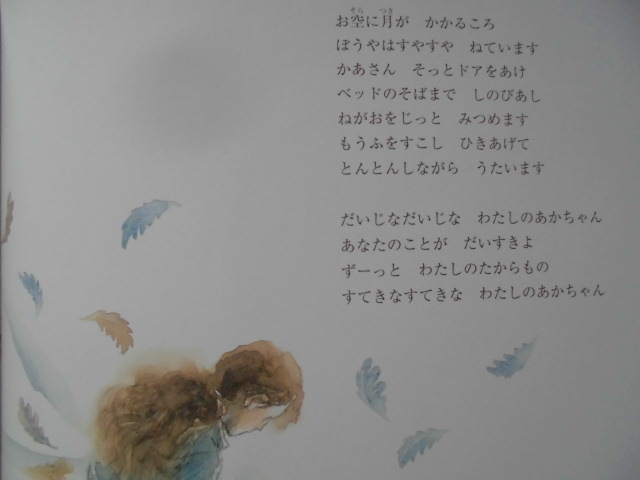 お空に月が　かかるころ
ぼうやはすやすや　ねています
かあさん　そっとドアをあけ
ベッドのそばまで　しのびあし
ねがおをじっと　みつめます
もうふをすこし　ひきあげて
とんとんしながら　うたいます
だいじなだいじな　わたしのあかちゃん
あなたのことが　だいすきよ
ずーっと　わたしのたからもの
すてきなすてきな　わたしのあかちゃん